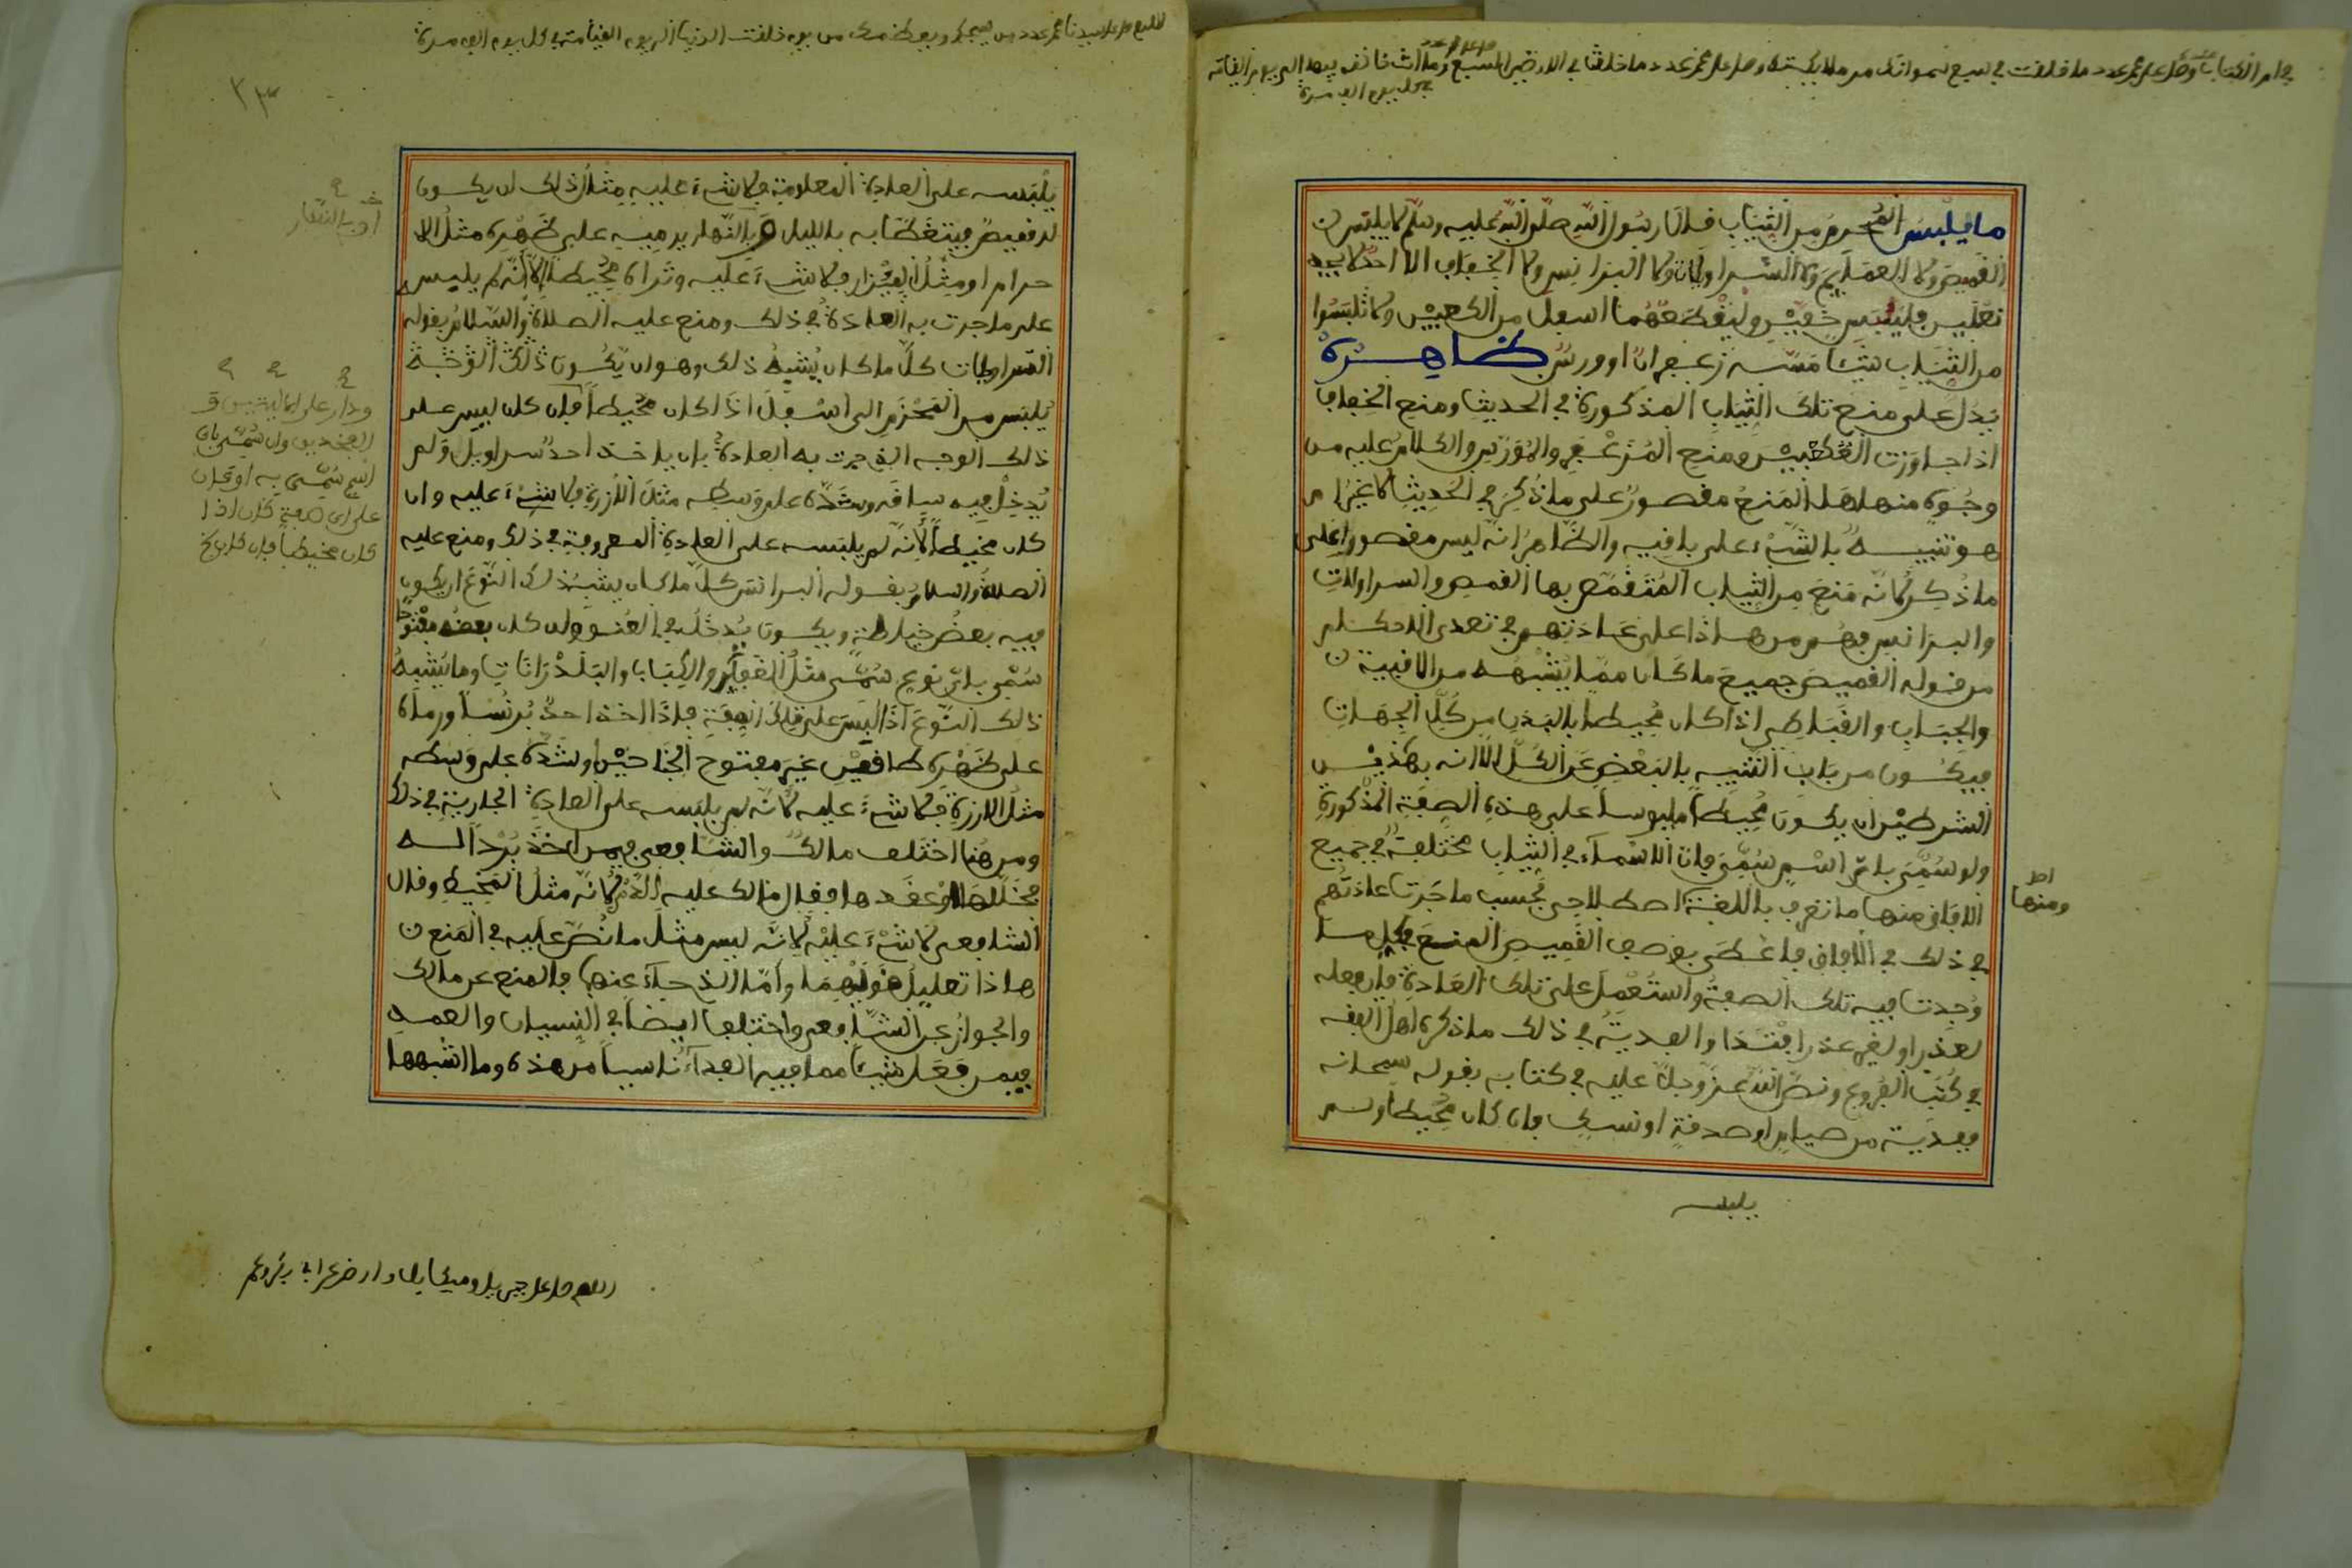 في ام الكتاب وصل على محمد عدد ما خلقت في سبع سمواتك من ملايكتك وصل على محمد عدد ما خلقت في الارضين السبع وما انت خالقه فيها الى يوم القيامة
في كل يوم الف مرة
ما يلبس المحرم من الثياب فقال رسول الله صلى الله عليه وسلم لا يلبس
القميص ولا العمايم ولا السراويلات ولا البرانس ولا الخفاف الا احد لا يجد
نعلين فليلبس خفين وليقطعهما اسفل من الكعبين ولا تلبسوا
من الثياب شيئا مسه زعفران او ورس ظاهره
يدل على منع تلك الثياب المذكورة في الحديث ومنع الخفاف
اذا جاوزت الكعبين ومنع المزعفر والمورس والكلام عليه من
وجوه منها هل المنع مقصور على ما ذكر في الحديث لا غير ام
هو تنبيه بالشيء على باقيه والظاهر انه ليس مقصورا على
ما ذكر لانه منع من الثياب المتقمص بها القميص والسراولات
والبرانس فهم من هذا على عادتهم في تعدي الاحكام
من قوله القميص جميع ما كان مما يشبهه من الاقبية
والجباب والقباطي اذا كان محيطا بالبدن من كل الجهات
فيكون من باب التنبيه بالبعض عن الكل الا انه بهذين
الشرطين ان يكون محيطا ملبوسا على هذه الصفة المذكورة
ولو سمي باي اسم سمي فان الاسماء في الثياب مختلفة في جميع
الافاق منها ما تعرف باللغة اصطلاحي بحسب ما جرت عادتهم
ومنها
في ذلك في الافاق فاعطى بوصف القميص المنع في كل ما
وجدت فيه تلك الصفة واستعمل على تلك العادة فان فعله
لعذر او لغير عذر افتدا والفدية في ذلك ما ذكره اهل الفقه
في كتب الفروع ونص الله عز وجل عليه في كتابه بقوله سبحانه
ففدية من صيام او صدقة او نسك فان كان محيطا ولم
يلبسه
اللهم صل على سيدنا محمد عدد من يسبحك ويعظمك من يوم خلقت الدنيا الى يوم القيامة في كل يوم الف مرة
٢٣
يلبسه على العادة المعلومة فلا شيء عليه مثل ذلك ان يكون
له قميص فيتغطا به بالليل وبالنهار يرميه على ظهره مثل الا
حرام او مثل الميزار فلا شيء عليه وتراه محيطا الا انه لم يلبس
على ما جرت به العادة في ذلك ومنع عليه الصلاة والسلام بقوله
السراويلات كل ما كان يشبه ذلك وهو ان يكون ذلك الوجه
يلبس من المحزم الى اسفل اذا كان محيطا فان كان ليس على
ذلك الوجه الذي جرت به العادة بان ياخذ احد سراويل ولم
يدخل فيه ساقه وشده على وسطه مثل الازرة فلا شيء عليه وان
كان مخيطا لانه لم يلبسه على العادة المعروفة في ذلك ومنع عليه
الصلاة والسلام بقوله البرانس كل ما كان يشبه ذلك النوع ان يكون
فيه بعض خياطة ويكون يدخل في العنق وان كان بعضه مفتوحا
سمي باي نوع سمي مثل الغفاير والكباب والبلذرانات وما يشبه
ذلك النوع اذا لبس على تلك الصفة فاذا اخذ احد برنسا ورماه
على ظهره طاقين غير مفتوح الجناحين او شده على وسطه
مثل الازرة فلا شيء عليه لانه لم يلبسه على العادة الجارية في ذلك
ومن هنا اختلف مالك والشافعي فيمن اخذ بردا له
فخللها او عقدها فقال مالك عليه الدم لانه مثل المخيط وقال
الشافعي لا شيء عليه لانه ليس مثل ما نص عليه في المنع
هاذا تعليل قوليهما واما الذي جاء عنهما فالمنع عن مالك
والجواز عن الشافعي واختلفا ايضا في النسيان والعمد
فيمن فعل شيئا مما فيه الفداء ناسيا من هذه وما اشبهها
ودار على
وان سمي باي
اسم سمي به او كان
على اي صفة كان اذا
كان مخيطا فان كان
اللهم صل على جبريل وميكايل وارض عن ابي بكر وعمر